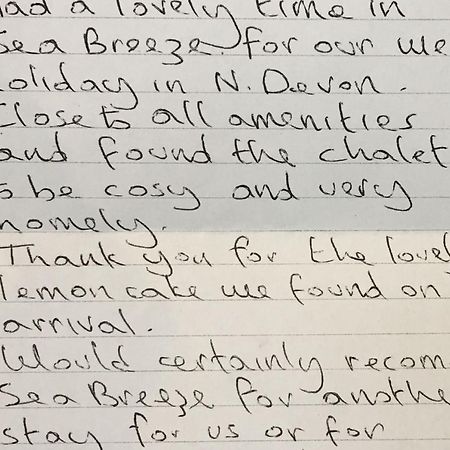 had a lovely time in
Sea Breeze for our we
oliday in N. Devon.
Close to all amenities
and found the chalet
o be cosy and very
homely.
Thank you for the lovel
lemon cake we found on
arrival.
Would certainly recom
Sea Breeze for anothe
stay for us or for